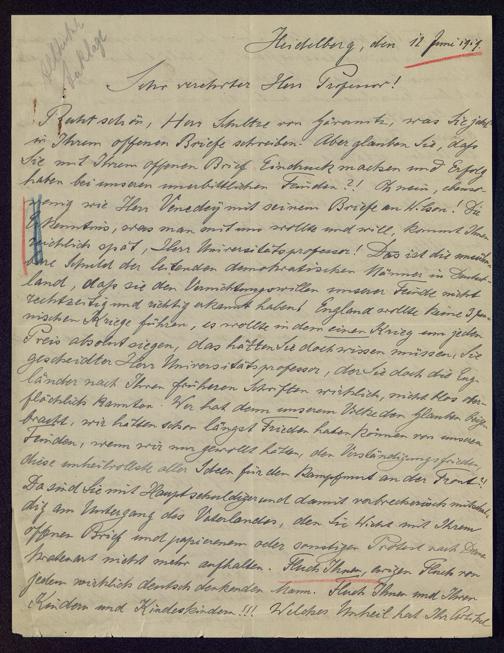 Heidelberg, den 12 Juni 1919.
Sehr verehrter Herr Professor!
Recht schön, Herr Schultze von Gävernitz, was Sie jetzt
in Ihrem offenen Briefe schreiben. Aber glauben Sie, daß
Sie mit Ihrem offenen Brief Eindruck machen und Erfolg
haben bei unseren unerbittlichen Feinden?! O nein, ebenso
wenig wie Herr Venedey mit seinem Briefe an Wilson! Die
Erkenntnis, was man mit uns wollte und will, kommt Ihnen
reichlich spät, Herr Universitätsprofessor! Das ist die
Schuld der leitenden demokratischen Männer in Deutsch-
land, daß sie den Vernichtungswillen unserer Feinde nicht
rechtzeitig und richtig erkannt haben! England wollte keine 3 pu-
nischen Kriege führen, es wollte in dem einen Krieg um jeden
Preis absolut siegen, das hätten Sie doch wissen müssen, Sie
gescheidter Herr Universitätsprofessor, der Sie doch die Eng-
länder nach Ihren früheren Schriften wirklich, nicht blos ober-
flächlich kannten. Wer hat denn unserem Volke den Glauben beige-
bracht, wir hätten schon längst Frieden haben können von unseren
Feinden, wenn wir nur gewollt hätten, den Verständigungsfrieden,
diese unheilvollste aller Ideen für den Kampfmut an der Front?!
Da sind Sie mit Hauptschuldiger und damit verbrecherisch mitschul-
dig am Untergang des Vaterlandes, den Sie nicht mit Ihrem
offnen Brief und papierenem oder sonstigen Protest nach
nicht mehr aufhalten. Fluch Ihnen, ewigen Fluch von
jedem wirklich deutsch denkenden Mann. Fluch Ihnen und Ihren
Kindern und Kindeskindern!!! Welches Unheil hat Ihr Artikel